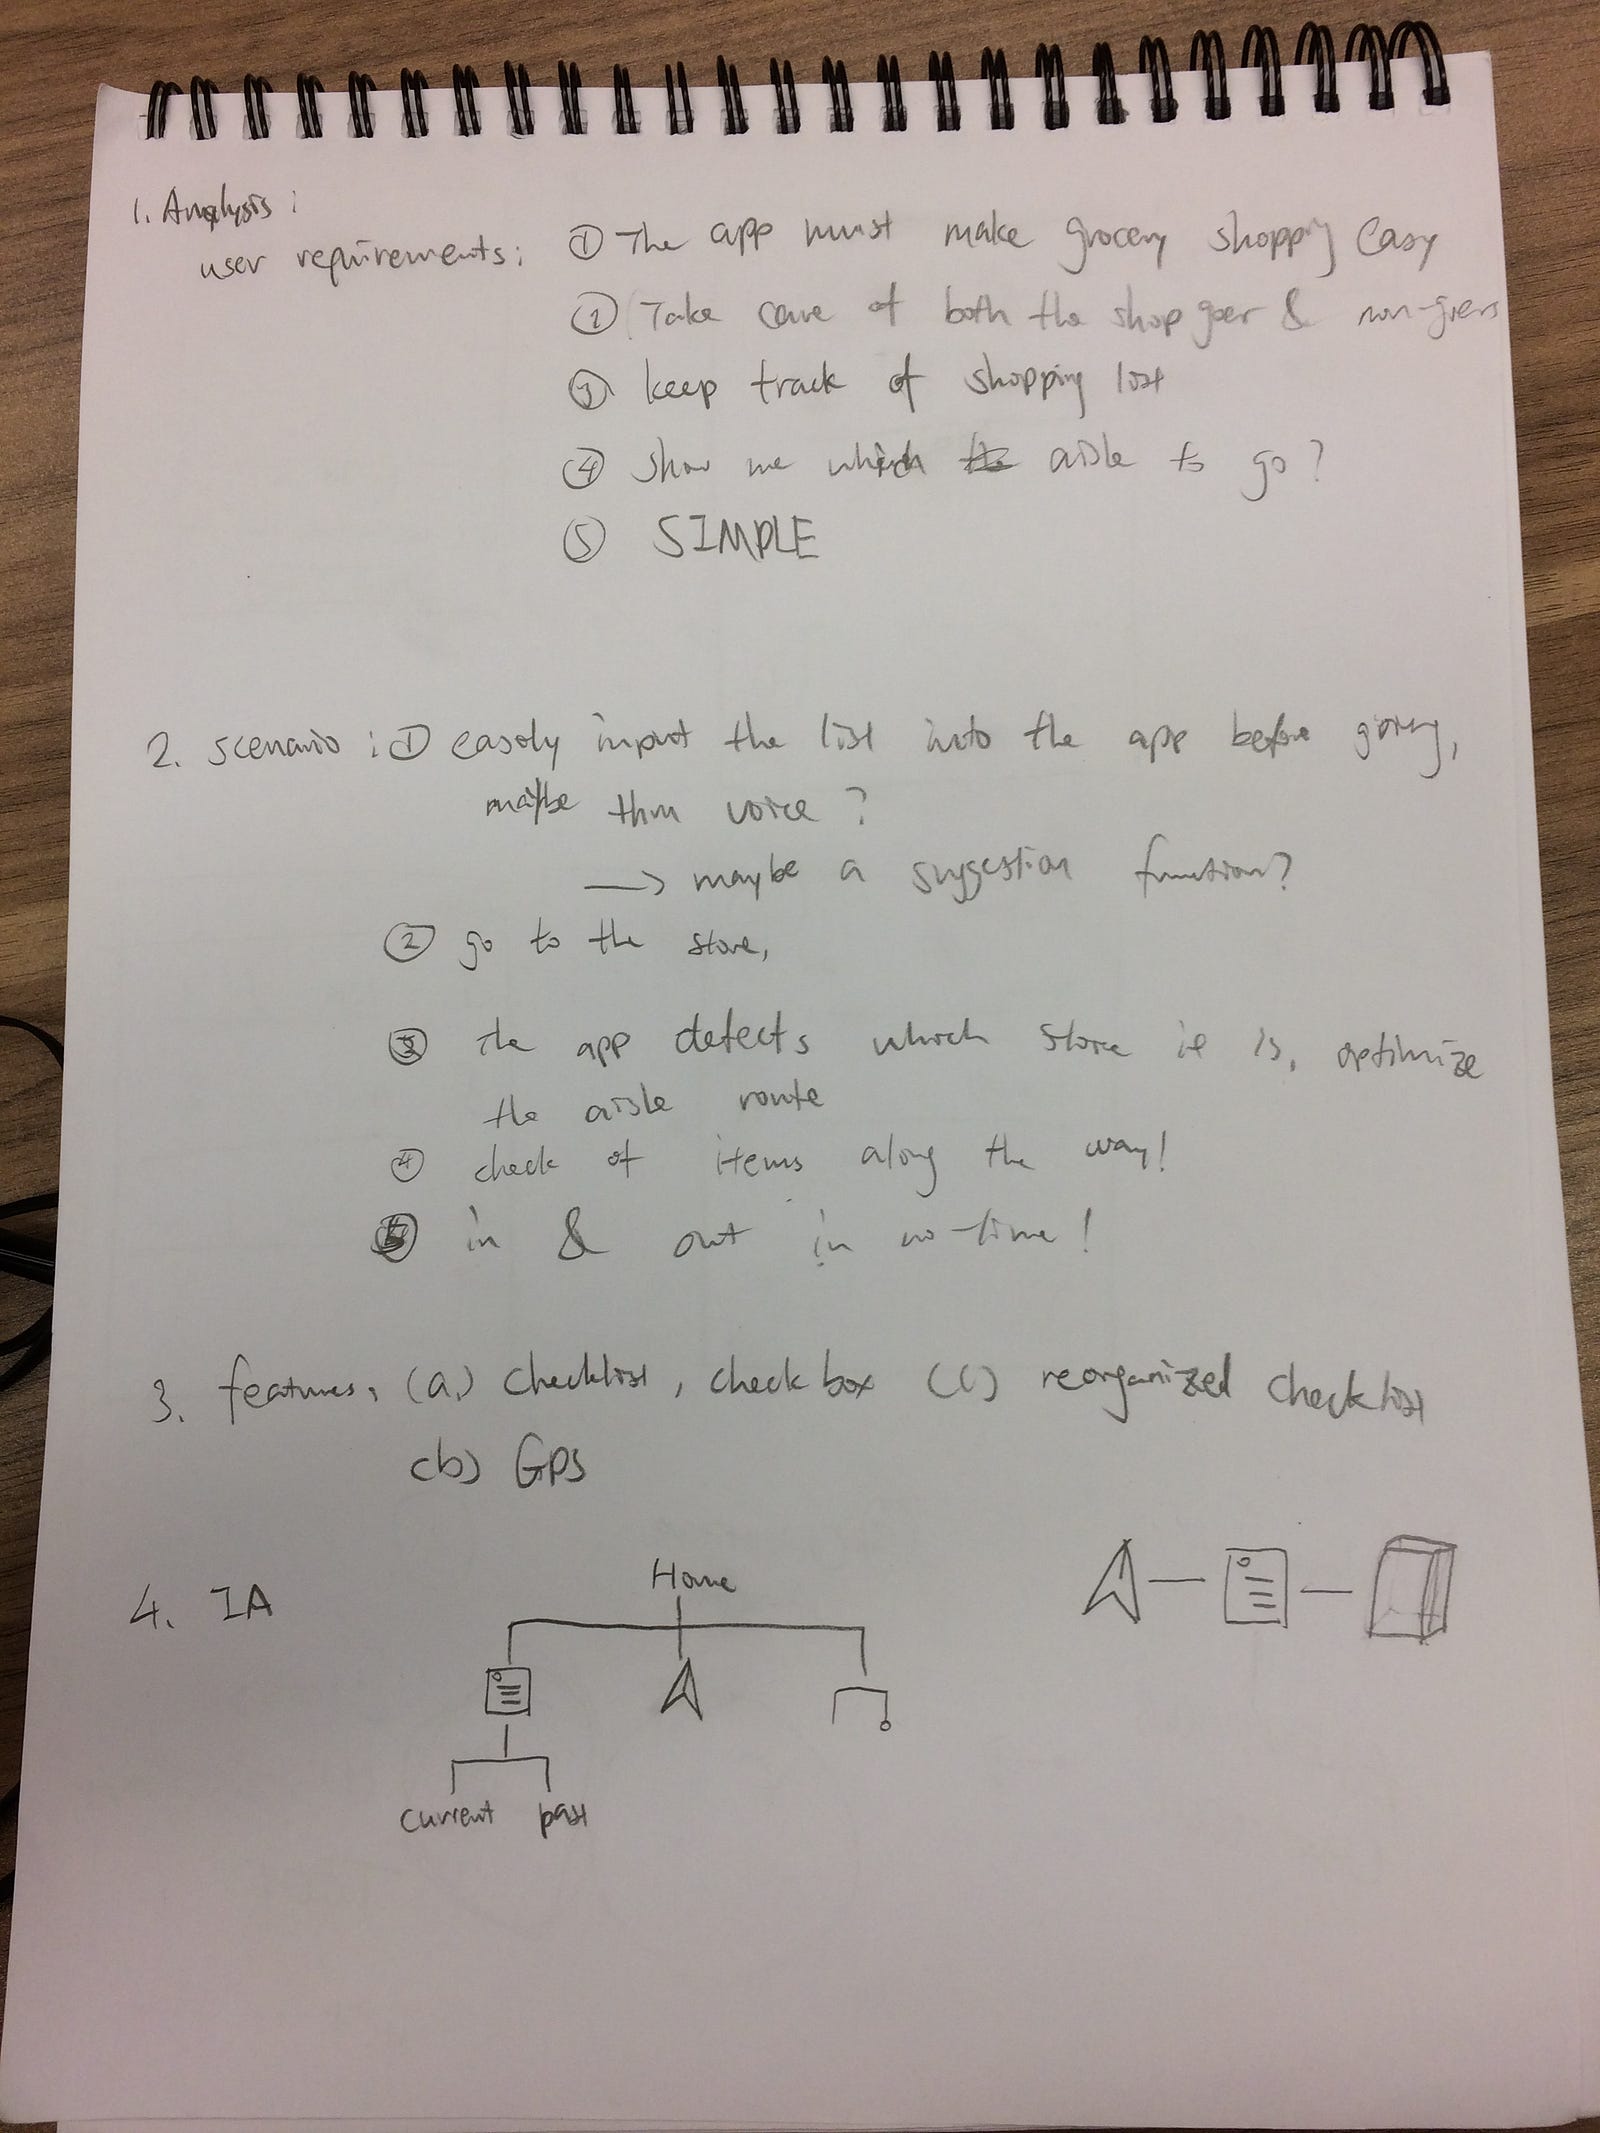 1. Analysis :
user requirements : ① The app must make grocery shopping easy
② Take care of both the shop goer & non-goers
③ keep track of shopping list
④ show me which the aisle to go ?
⑤ SIMPLE
2. scenario : ① easily input the list into the app before going,
maybe thru voice ?
→ maybe a suggestion function?
② go to the store,
③ the app detects which store it is, optimize
the aisle route
④ check of items along the way!
⑤ in & out in no-time!
3. features: (a.) checklist, checkbox (c) reorganized checklist
(b) GPS
4. IA
Home
current past